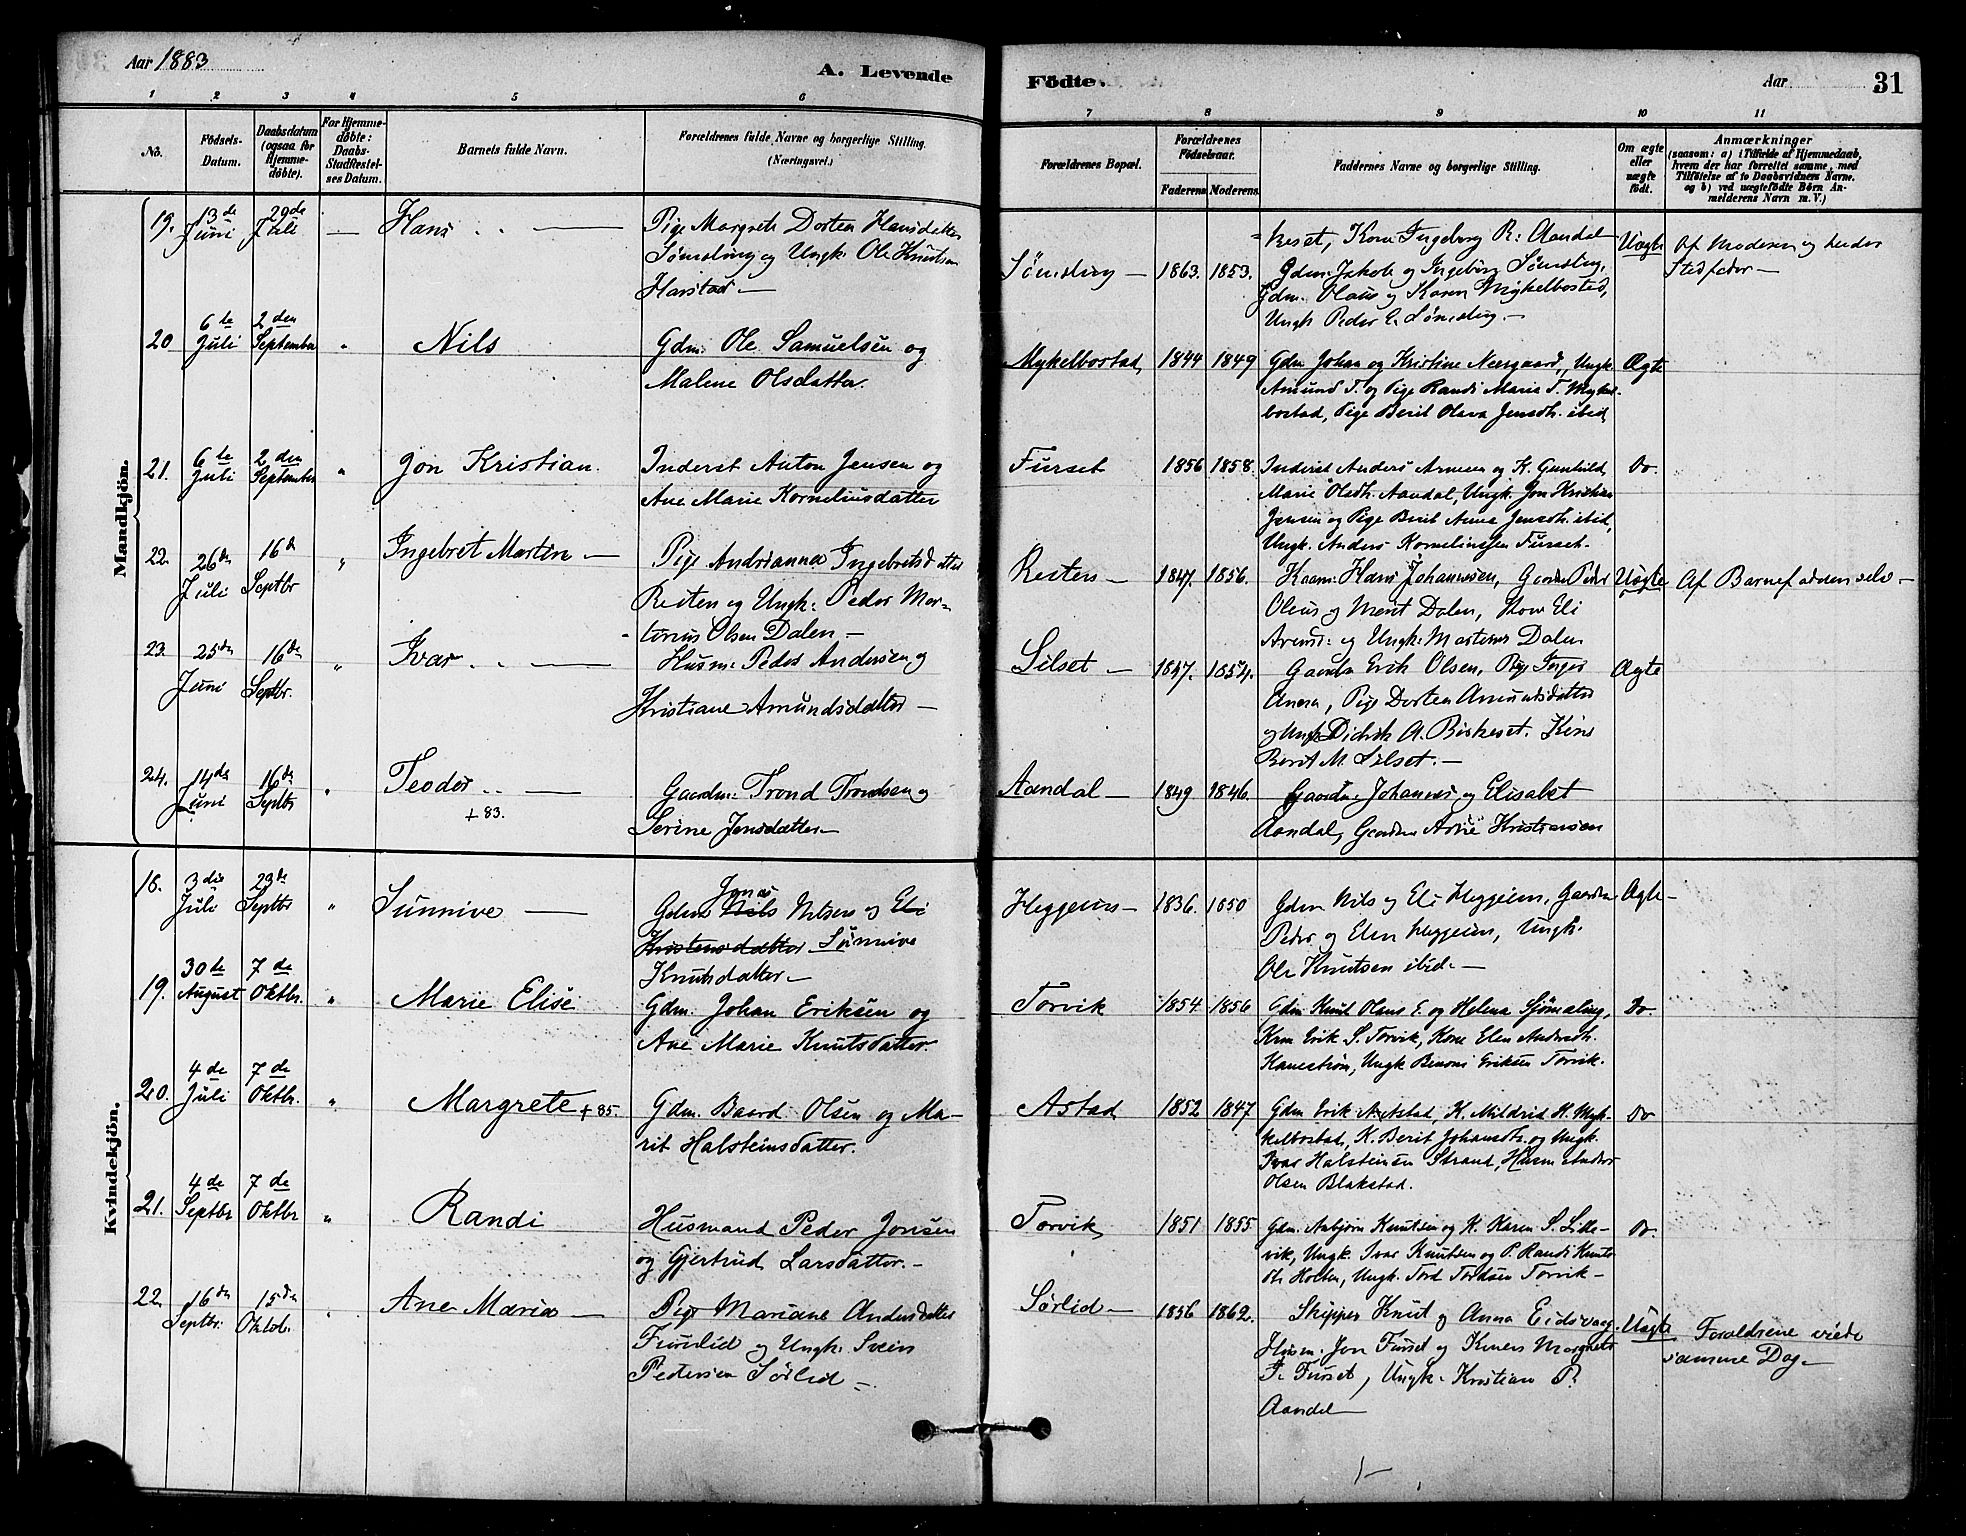 Aar 1883
A. Levende
Födte.
Aar
31
1 2 3 4 5 6 7 8 9 10 11
No.
Födsels-
Datum.
Daabsdatum
(ogsaa for
Hjemme-
døbte).
For Hjemme-
døbte:
Daabs-
Stadfæstel-
ses Datum.
Barnets fulde Navn.
Forældrenes fulde Navne og borgerlige Stilling.
(Næringsvei.)
Forældrenes Bopæl.
Forældrenes
Fødselsaar.
Faderens
Moderens
Faddernes Navne og borgerlige Stilling.
Om ægte
eller
uægte
født.
Anmærkninger
(saasom: a) i Tilfælde af Hjemmedaab,
hvem der har forrettet samme, med
Tilføielse af to Daabsvidners Navne,
og b) ved uægtefødte Børn An-
melderens Navn m. V.)
Mandkjön.
19. 13de Juni 29de Juli — Hans
Pige Margrete Dorten Hansdatter
Sömsling og Ungk: Ole Knutsen
Harstad —
Sömsling — 1863. 1853.
keset, Kone Ingeborg R. Aandal
Gdm: Jakob og Ingeborg Sömsling,
Gdm. Olaus og Karen Mykelbostad,
Ungk Peder E. Sömsling. —
Uægte
Af Moderen og hendes
Stedfader —
20 6te Juli 2den September " Nils
Gdm. Ole Samuelsen og
Malene Olsdatter.
Mykelbostad, 1844 1849
Gdm Johan og Kristine Neergaard, Ungk.
Amund T. og Pige Randi Maria T. Mykel-
bostad, Pige Berit Olava Jensdtr. ibid
Ægte
21. 6te Juli 2den September " Jon Kristian
Inderst Anton Jensen og
Ane Marie Korneliusdatter
Furset 1856 1858.
Inderst Anders Arnesen og K. Gunhild
Marie Olsdtr. Aandal, Ungk. Jon Kristian
Jensen og Pige Berit Anna Jensdtr. ibid,
Ungk. Anders Korneliussen Furset.
Do.
22. 26de Juli 16de Septbr " Ingebret Martin —
Pige Andrianna Ingebretsdatter
Resten og Ungk: Peder Mor-
tinus Olsen Dalen —
Resten — 1847. 1856.
Kaarm: Hans Johannesen, Gaardm Peder
Olaus og Merit Dalen, Kone Eli
Arends: og Ungk: Martinus Dalen
Uægte
Af Barnefaderen selv —
23. 25de Juni 16de Septbr. " Ivar
Husm: Peder Andersen og
Kristiane Amundsdatter —
Silset — 1847. 1854.
Gaardm Erik Olsen, Pige Inger
Anna, Pige Dorten Amundsdatter
og Ungk Didrik A. Birkeset. Kone
Berit M. Silset. —
Ægte
24. 14de Juni 16de Septbr " Teodor +83.
Gaardm: Trond Trondsen og
Serine Jensdatter —
Aandal — 1849 1846.
Gaardm: Johannes og Elisabet
Aandal, Gaardm Arne Kristensen
Kvindekjön.
18. 3die Juli 23de Septbr " Sunnive —
Jonas
Gdm Nils Nilsen og Eli
Kristensdatter Sunnive
Knutsdatter —
Heggeim — 1836. 1850
Gdm Nils og Eli Heggeim, Gaardm
Peder og Elen Heggeim, Ungk.
Ole Knutsen ibid. —
Ægte —
19. 30te August 7de Oktbr. " Marie Elise
Gdm. Johan Eriksen og
Ane Marie Knutsdatter.
Torvik 1854 1856
Gdm Knut Olaus E. og Helena Sjömsling,
Krm Erik S. Torvik, Kone Elen Andersdtr.
Hanestrøm, Ungk Benoni Eriksen Torvik.
Do.
20. 4de Juli 7de Oktbr. " Margrete +85.
Gdm. Baard Olsen og Ma-
rit Halsteinsdatter.
Astad 1852 1847
Gdm Erik A. Astad, K. Mildrid H. Myk-
kelbostad, K. Berit Johansdtr. og Ungk.
Ivar Halsteinsen Strand, Husm Anders
Olsen Blakstad.
Do
21. 4de Septbr 7de Oktbr " Randi
Husmand Peder Jonsen
og Gjertrud Larsdatter. —
Torvik 1851 1855
Gdm. Asbjørn Knutsen og K. Karen S. Lille-
vik, Ungk. Ivar Knutsen og P. Randi Knuts-
dtr Holten, Ungk. Tord Tordsen Torvik —
Do.
22. 16de Septbr. 15de Oktob. " Ane Maria —
Pige Mariane Andersdatter
Furulid og Ungk. Svein
Pedersen Sörlid —
Sörlid — 1856 1862.
Skipper Knut og Anna Eidsvaag.
Husm. Jon Furset og Konen Margrete
F. Furset, Ungk. Kristian P.
Aandal —
Uægte
Foreldrene viede
samme Dag —